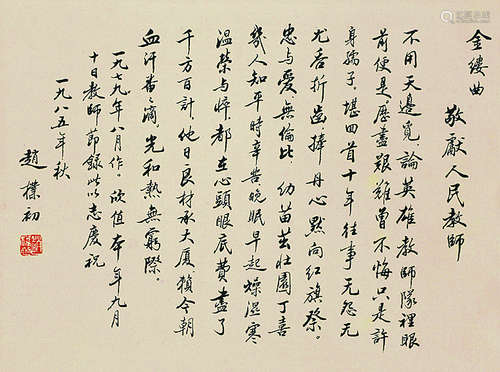 金缕曲
敬獻人民教师
不用天邊覓論英雄教師隊裡眼
前便是歷盡艱難曾不悔只是許
身孺子堪回首十年往事无怨无
尤吞折齒捧丹心默向红旗祭。
忠与愛無倫比 幼苗茁壮園丁喜
幾人知平時辛苦晚眠早起燥濕寒
温榮与悴都在心頭眼底費盡了
千方百計他日良材承大厦赖今朝
血汗番番滴。光和熱無窮際。
一九七九年八月作。欣值本年九月
十日教師節錄此以志慶祝
一九八五年秋
趙樸初